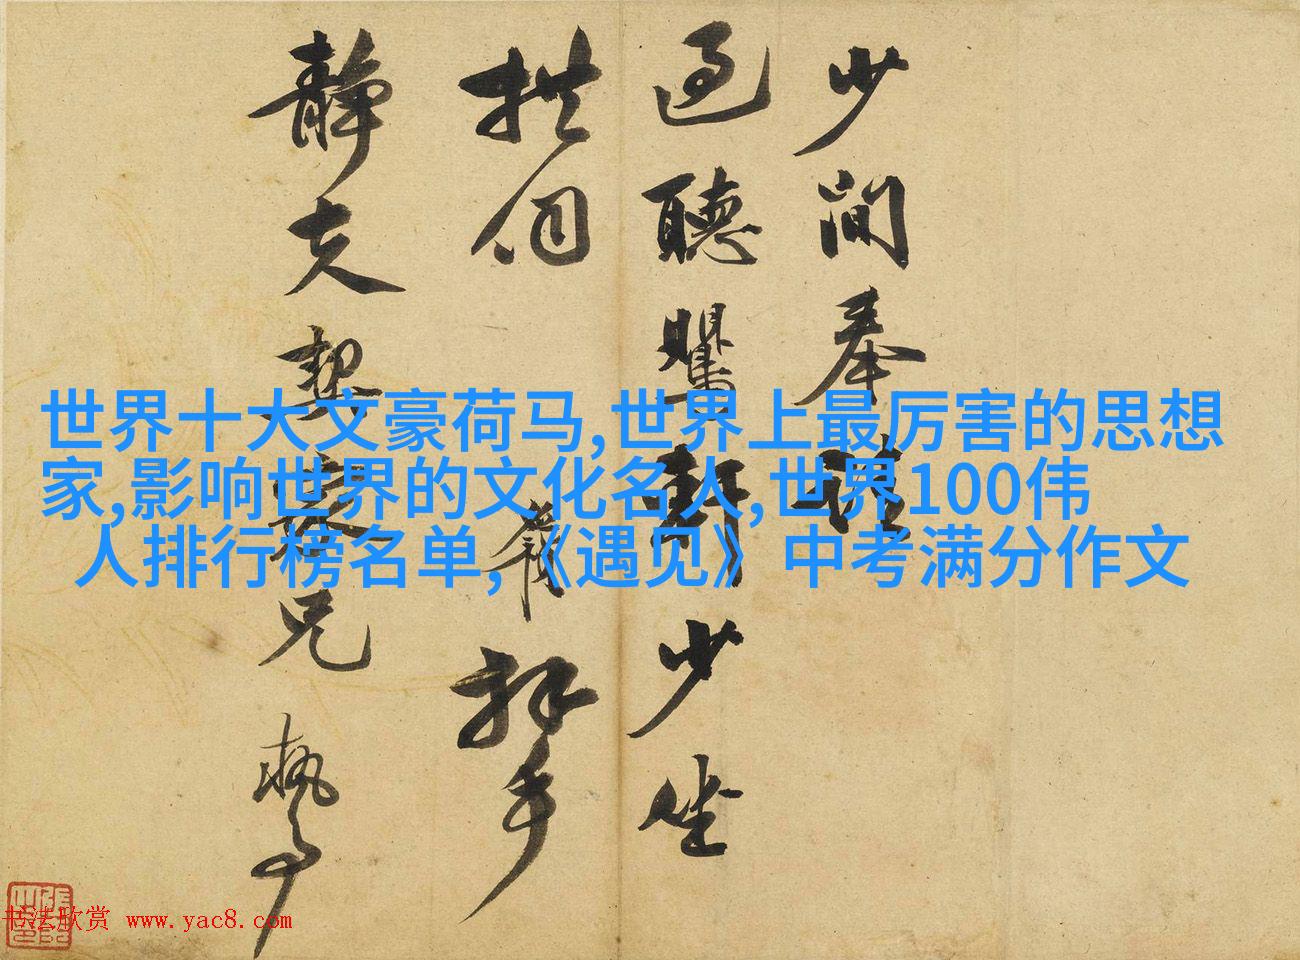 少閒奉
過聽 少坐
拱伺 拜手
靜夫契家兄執事
世界十大文豪荷马,世界上最厉害的思想
家,影响世界的文化名人,世界100伟
人排行榜名单,《遇见》中考满分作文
书法欣赏 www.yac8.com